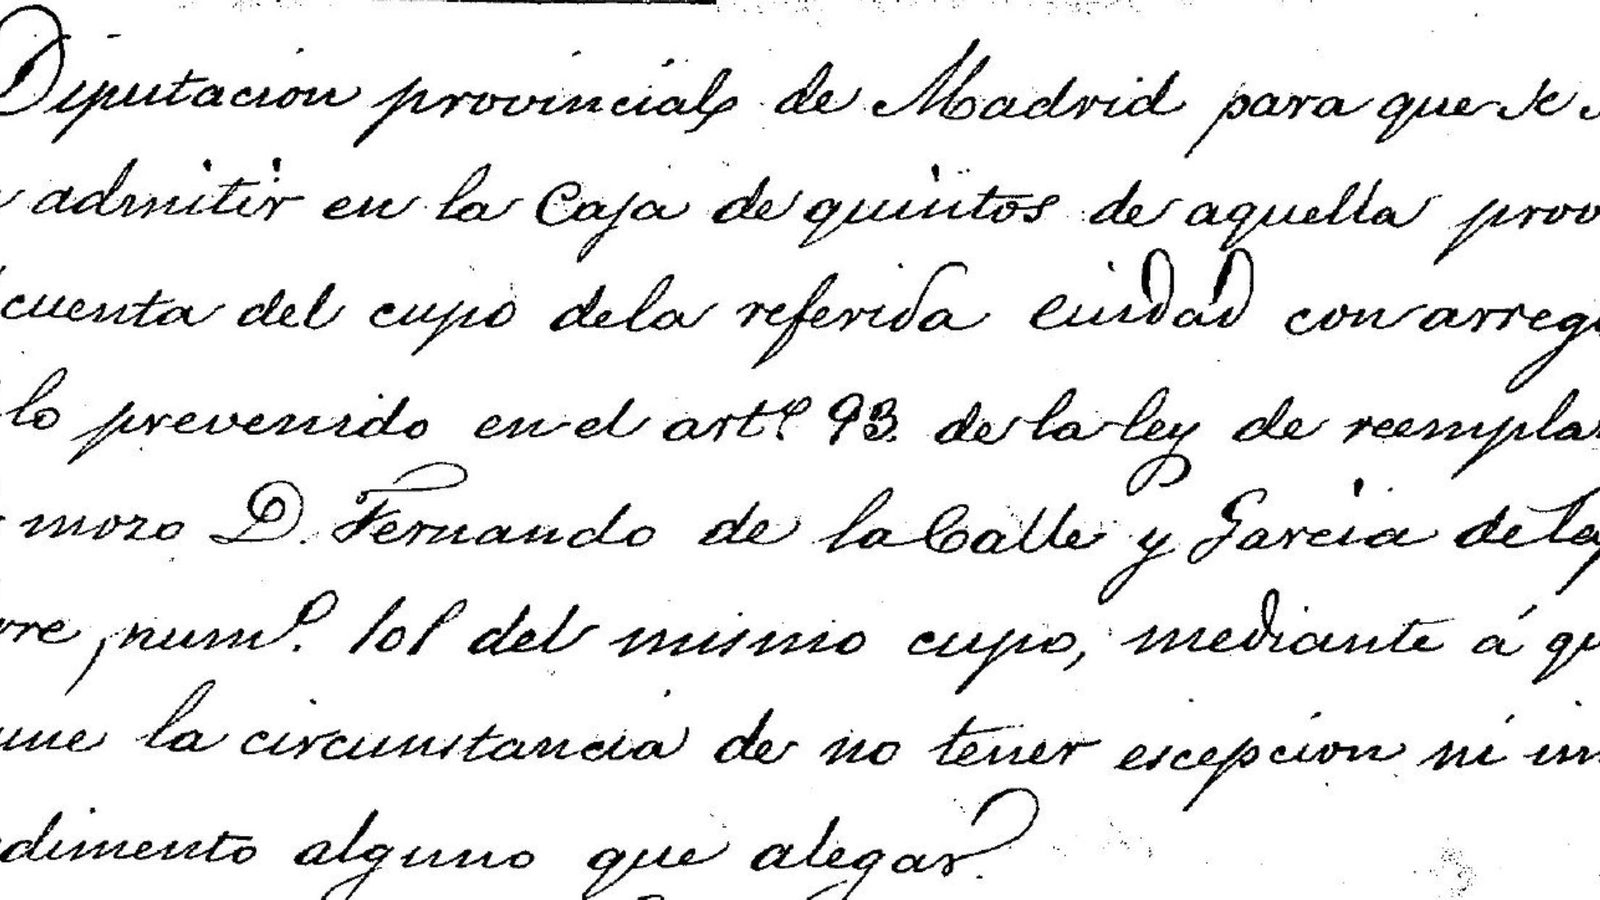 Diputacion provincial de Madrid para que se
admitir en la Caja de quintos de aquella prov
cuenta del cupo dela referida Ciudad con arregl
lo prevenido en el artº 93. de la ley de reempla
mozo D. Fernando de la Calle y Garcia de la
rre, numº. 101 del mismo cupo, mediante á qu
une la circunstancia de no tener escepcion ni im
dimento alguno que alegar.